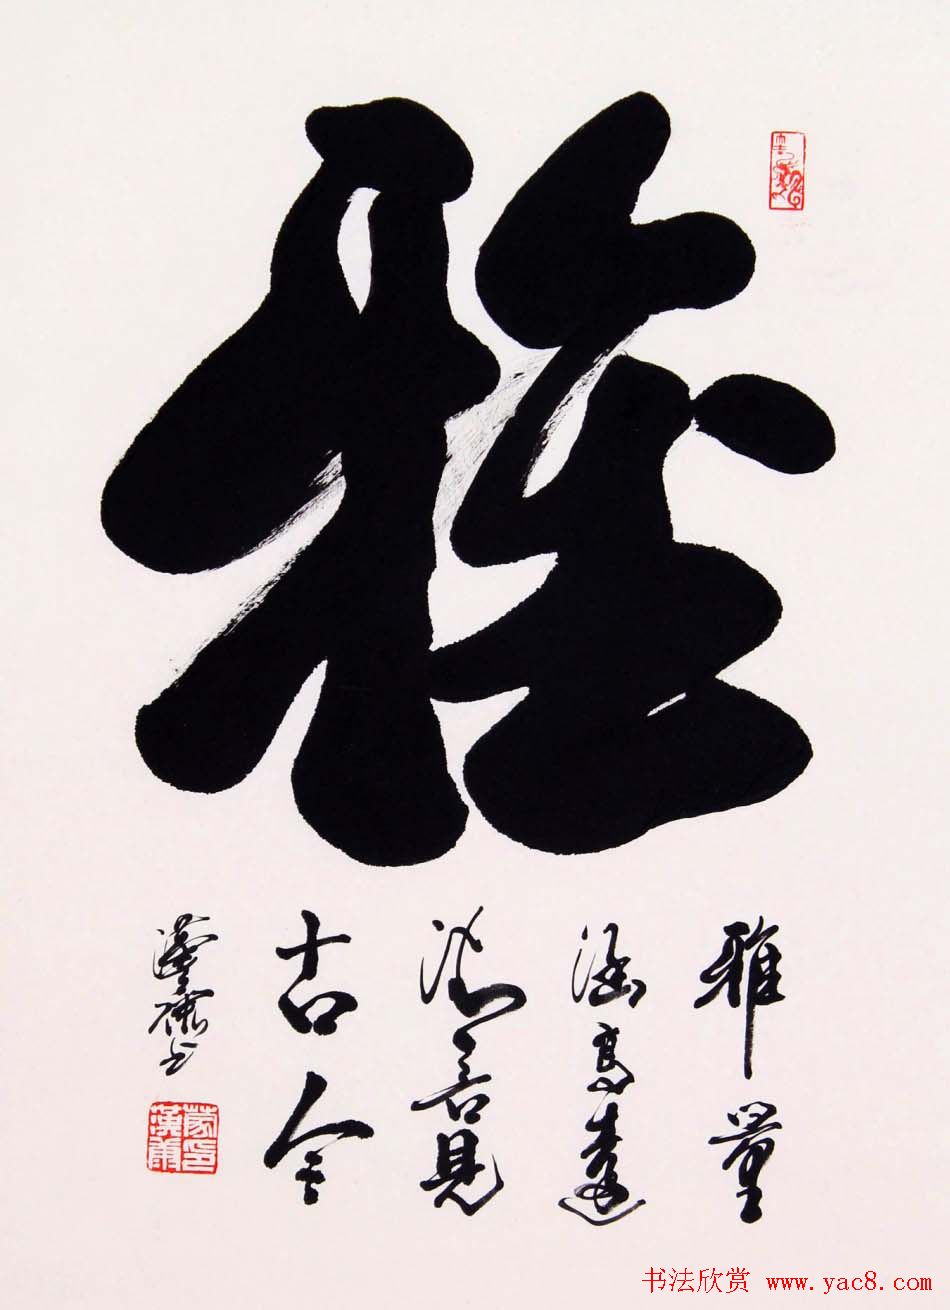 雅
雅量
涵高遠
清言見
古今
书法欣赏 www.yac8.com